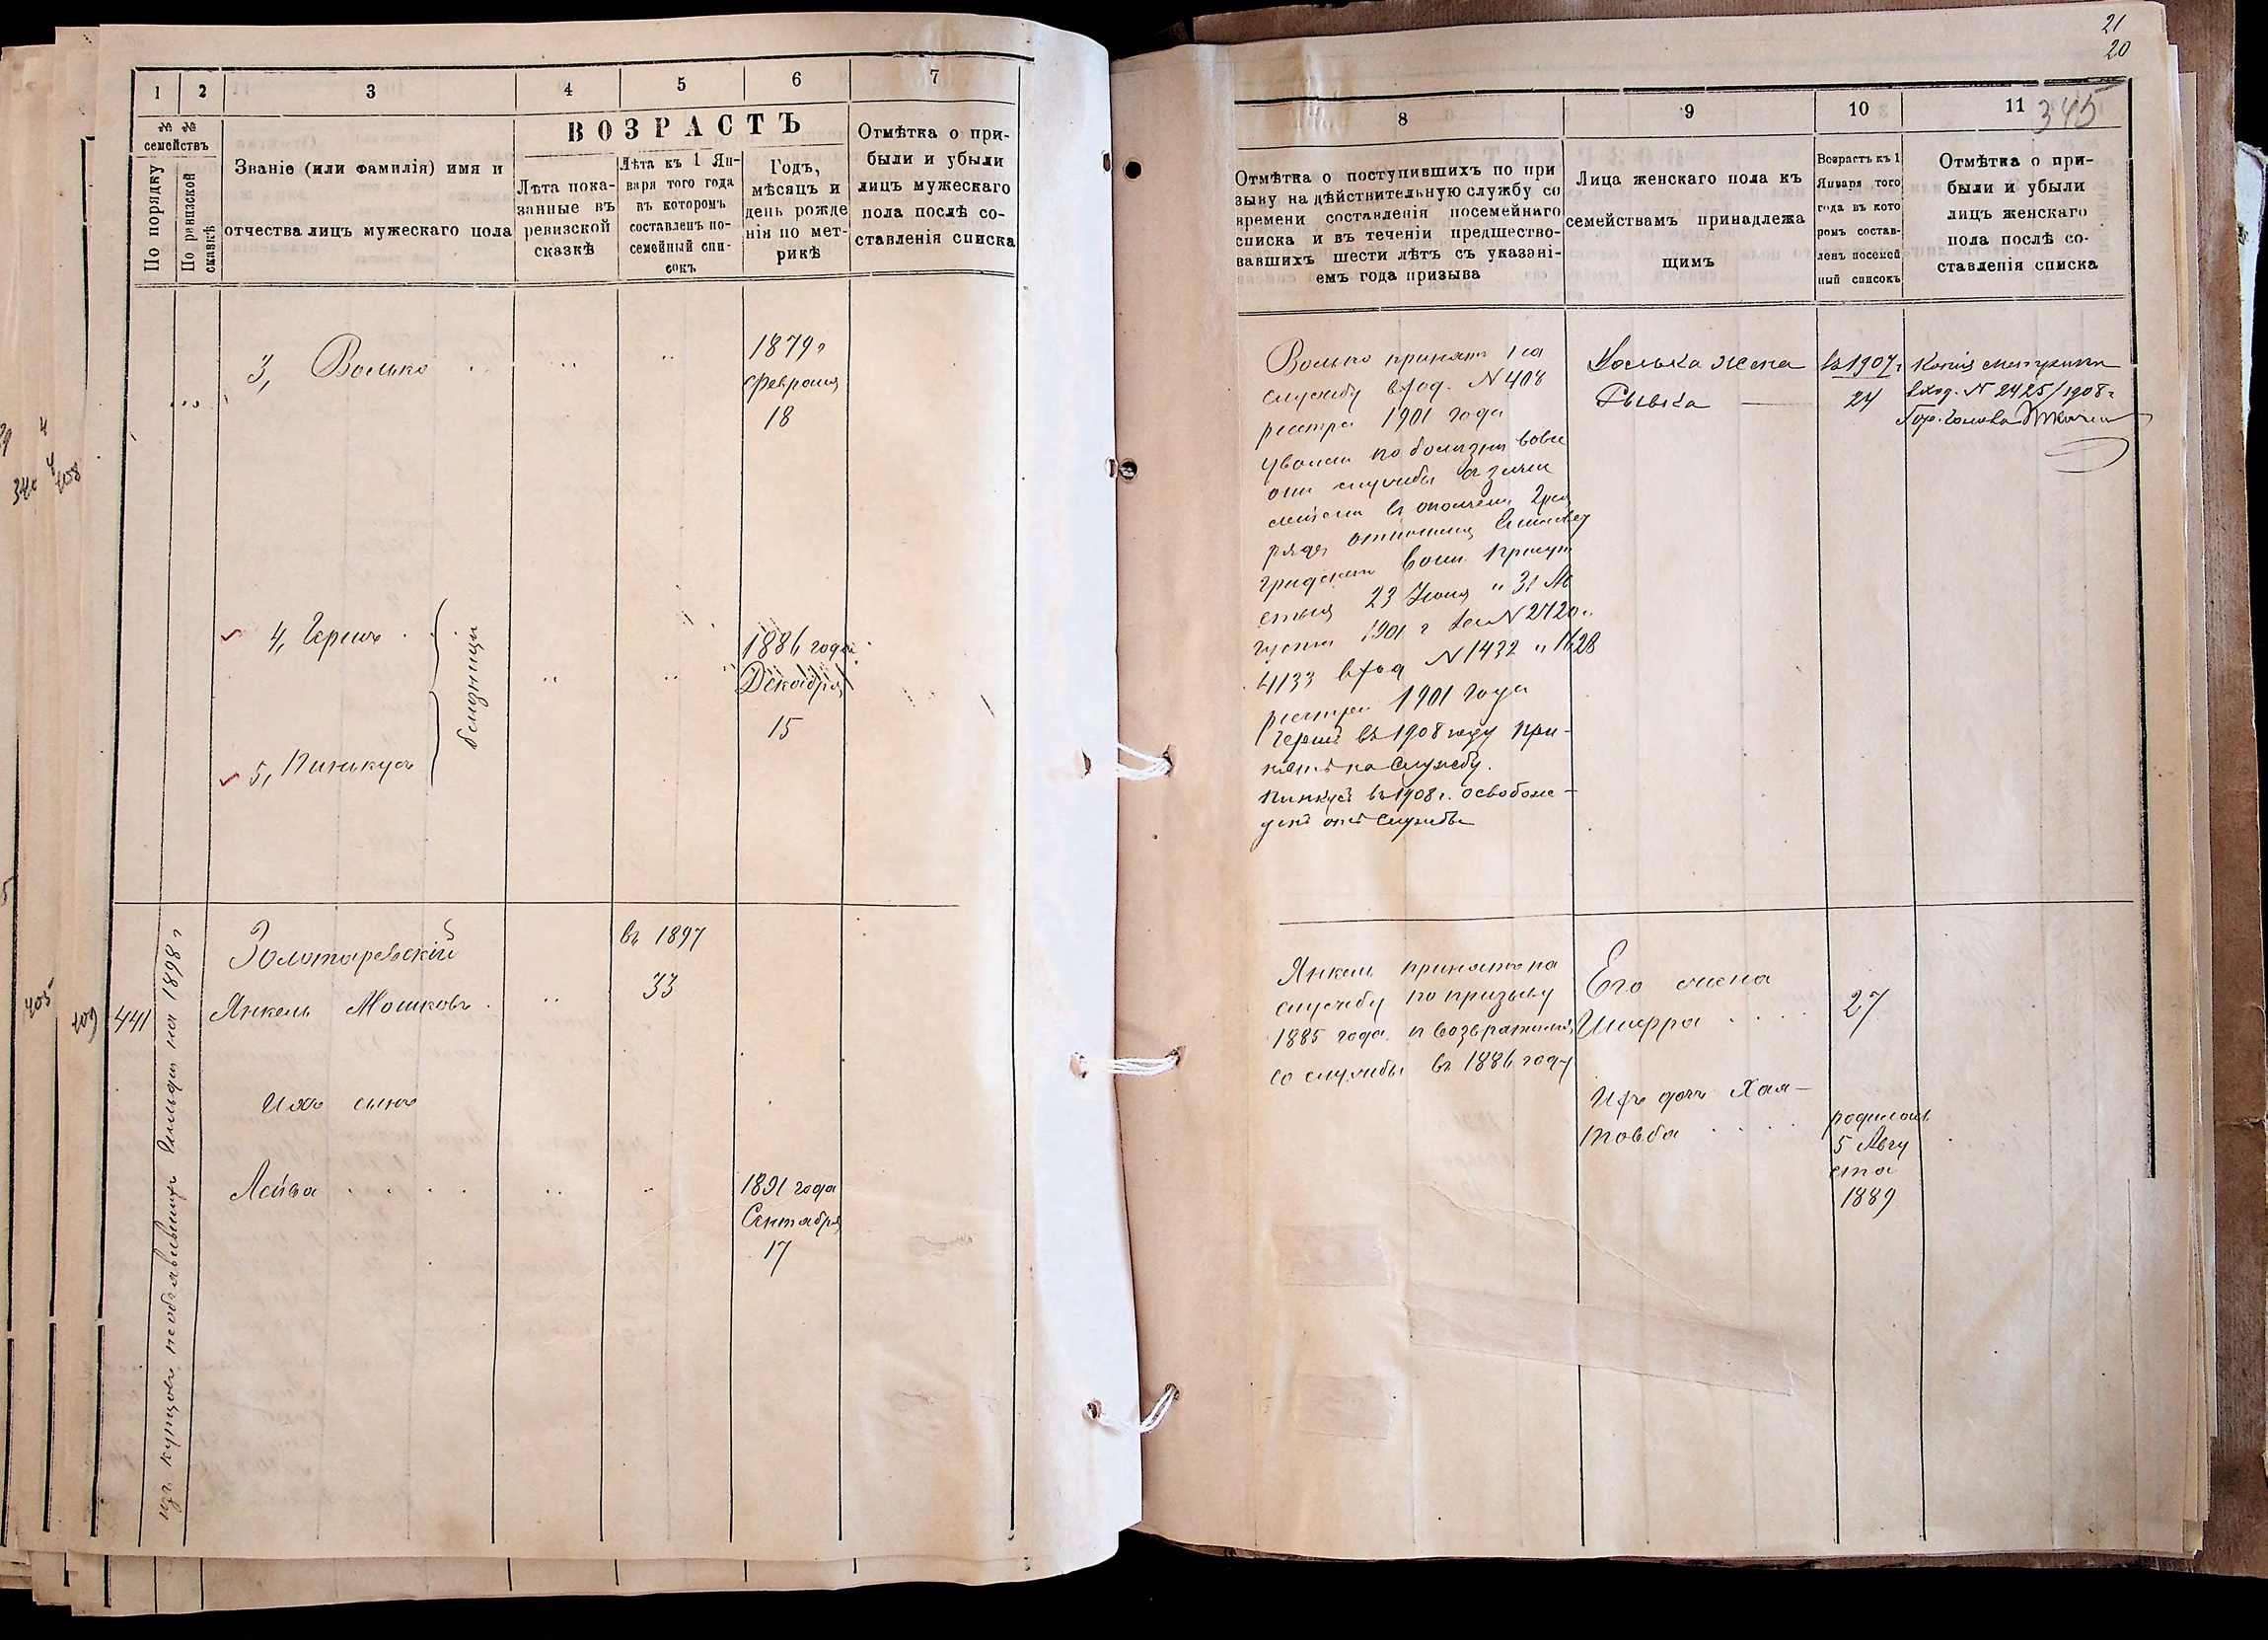 1
2
3
4
5
6
7
№ №
семействъ
По порядку
По ревизской
сказкѣ
Званіе (или фамилія) имя и
отчества лицъ мужескаго пола
ВОЗРАСТЪ
Лѣта пока-
занные въ
ревизской
сказкѣ
Лѣта къ 1 Ян-
варя того года
въ которомъ
составленъ по-
семейный спи-
сокъ
Годъ,
мѣсяцъ и
день рожде
нія по мет-
рикѣ
Отмѣтка о при-
были и убыли
лицъ мужескаго
пола послѣ со-
ставленія списка
3, Волько
1879 г
Февраля
18
4, Гершъ
близнецы
1886 года
Декабря
15
5, Пинькусъ
405
409
441
изъ купцовъ необъявившихъ Гильдіи на 1898 г
Золотаревскій
въ 1897
Янкель Мошковъ
33
Ихъ сынъ
Лейба
1891 года
Сентября
17
21
20
345
8
9
10
11
Отмѣтка о поступившихъ по при
зыву на дѣйствительную службу со
времени составленія посемейнаго
списка и въ теченіи предшество-
вавшихъ шести лѣтъ съ указані-
емъ года призыва
Лица женскаго пола къ
семействамъ принадлежа
щимъ
Возрастъ къ 1
Января того
года въ кото
ромъ состав-
ленъ посемей
ный списокъ
Отмѣтка о при-
были и убыли
лицъ женскаго
пола послѣ со-
ставленія списка
Волько принятъ на
службу вход. N 408
реестра 1901 года
уволенъ по болѣзни вовсе
отъ службы и зачи
сленъ въ ополчен. 2 раз
ряда отношенія Елисавет
градскаго Воин. Присут
ствія 23 Іюня и 31 Ав
густа 1901 г за N 2720 и
4133 вход N 1432 и 1628
реестра 1901 года
Гершъ въ 1908 году при-
нятъ на службу.
Пинкусъ въ 1908 г. освобож-
денъ отъ службы
Волька жена
Рывка
въ 1907 г
24
Копія метрики
вход. N 2425/1908 г
Гор. Голова
Янкель принятъ на
службу по призыву
1885 года и возвратился
со службы въ 1886 году
Его жена
Шифра
27
Ихъ дочь Хая-
Товба
родилась
5 Авгу
ста
1889